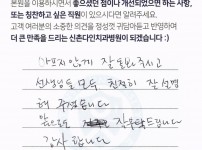 본원을 이용하시면서 좋으셨던 점이나 개선되었으면 하는 사항,
또는 칭찬하고 싶은 직원이 있으시다면 알려주세요.
고객 여러분의 소중한 의견을 정성껏 귀담아듣고 반영하여
더 큰 만족을 드리는 신촌다인치과병원이 되겠습니다 :)
아프지않게 잘 치료해주시고
선생님들 모두 친절히 잘 설명
해 주셨습니다
앞으로도 잘부탁드립니다
감사합니다